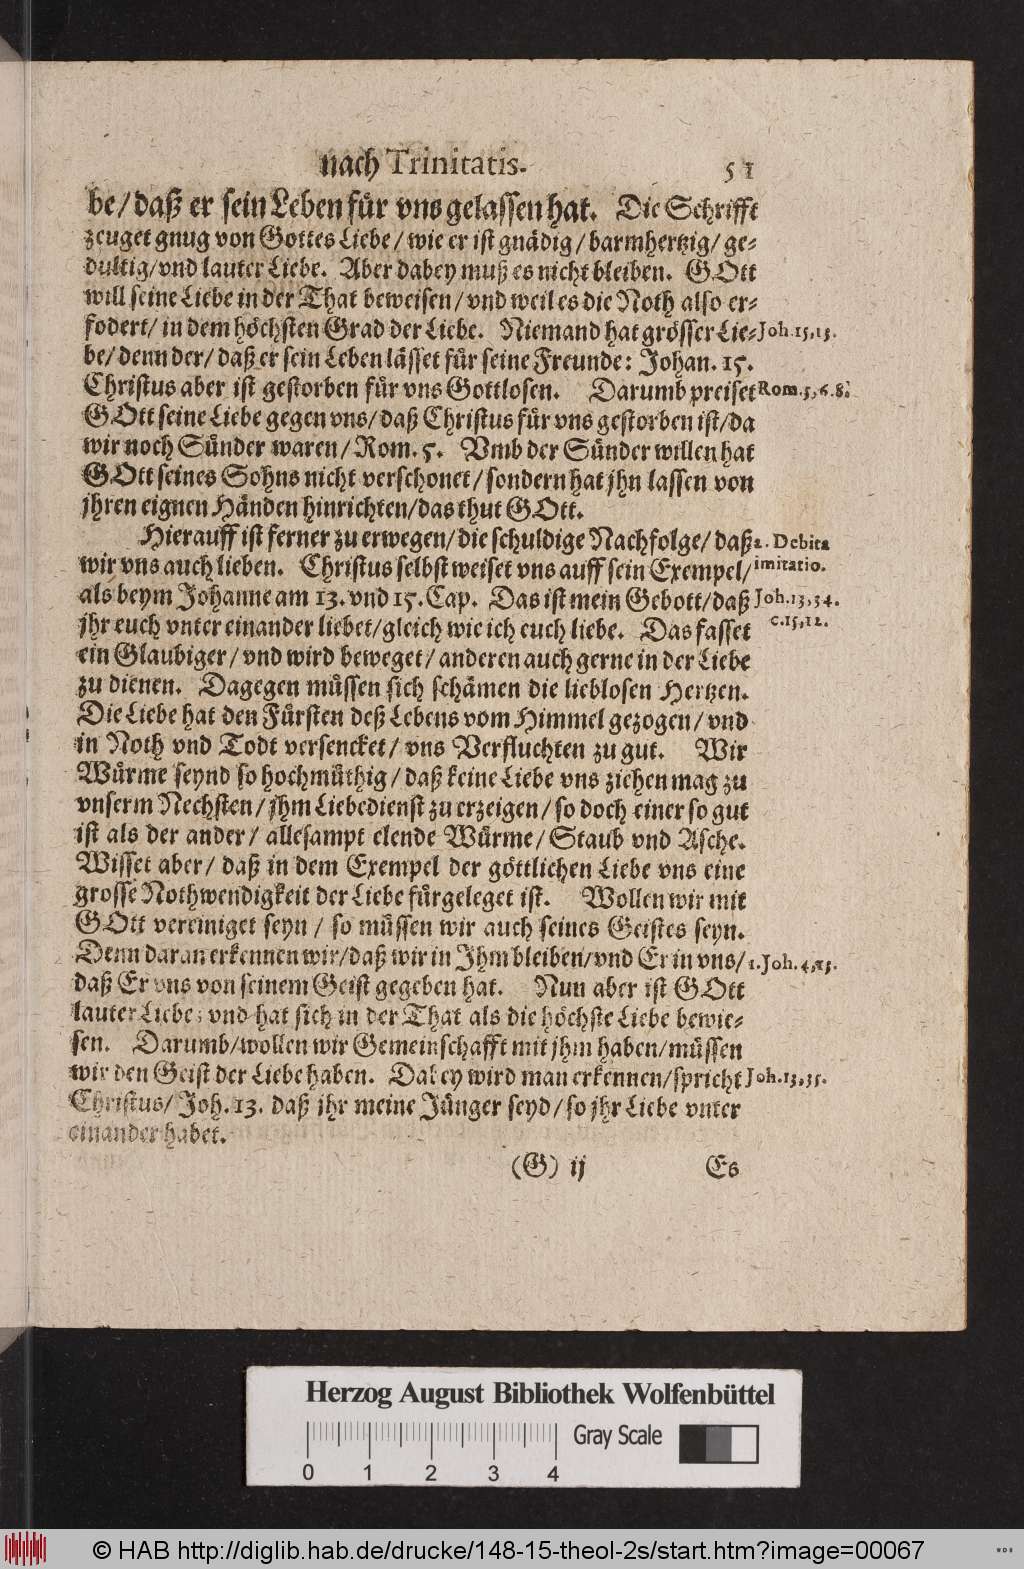 nach Trinitatis. 51
be/ daß er sein Leben für vns gelassen hat. Die Schrifft
zeuget gnug von Gottes Liebe/ wie er ist gnädig/ barmhertzig/ ge-
dultig/ vnd lauter Liebe. Aber dabey muß es nicht bleiben. GOtt
will seine Liebe in der That beweisen/ vnd weil es die Noth also er-
fodert/ in dem höchsten Grad der Liebe. Niemand hat grösser Lie- Joh. 15, 13.
be/ denn der/ daß er sein Leben lässet für seine Freunde: Johan. 15.
Christus aber ist gestorben für vns Gottlosen. Darumb preiset Rom. 5, 6. 8.
GOtt seine Liebe gegen vns/ daß Christus für vns gestorben ist/ da
wir noch Sünder waren/ Rom. 5. Vmb der Sünder willen hat
GOtt seines Sohns nicht verschonet/ sondern hat jhn lassen von
jhren eignen Händen hinrichten/ das thut GOtt.
Hierauff ist ferner zu erwegen/ die schuldige Nachfolge/ daß 2. Debita
wir vns auch lieben. Christus selbst weiset vns auff sein Exempel/ imitatio.
als beym Johanne am 13. vnd 15. Cap. Das ist mein Gebott/ daß Joh. 13, 34.
jhr euch vnter einander liebet/ gleich wie ich euch liebe. Das fasset c. 15, 12.
ein Glaubiger/ vnd wird beweget/ anderen auch gerne in der Liebe
zu dienen. Dagegen müssen sich schämen die lieblosen Hertzen.
Die Liebe hat den Fürsten deß Lebens vom Himmel gezogen/ vnd
in Noth vnd Todt versencket/ vns Verfluchten zu gut. Wir
Würme seynd so hochmüthig/ daß keine Liebe vns ziehen mag zu
vnserm Nechsten/ jhm Liebedienst zu erzeigen/ so doch einer so gut
ist als der ander/ allesampt elende Würme/ Staub vnd Asche.
Wisset aber/ daß in dem Exempel der göttlichen Liebe vns eine
grosse Nothwendigkeit der Liebe fürgeleget ist. Wollen wir mit
GOtt vereiniget seyn/ so müssen wir auch seines Geistes seyn.
Denn daran erkennen wir/ daß wir in Ihm bleiben/ vnd Er in vns/ 1. Joh. 4, 13.
daß Er vns von seinem Geist gegeben hat. Nun aber ist GOtt
lauter Liebe; vnd hat sich in der That als die höchste Liebe bewie-
sen. Darumb/ wollen wir Gemeinschafft mit jhm haben/ müssen
wir den Geist der Liebe haben. Dabey wird man erkennen/ spricht Joh. 13, 35.
Christus/ Joh. 13. daß jhr meine Jünger seyd/ so jhr Liebe vnter
einander habet.
(G) ij Es
Herzog August Bibliothek Wolfenbüttel
Gray Scale
0 1 2 3 4
© HAB http://diglib.hab.de/drucke/148-15-theol-2s/start.htm?image=00067